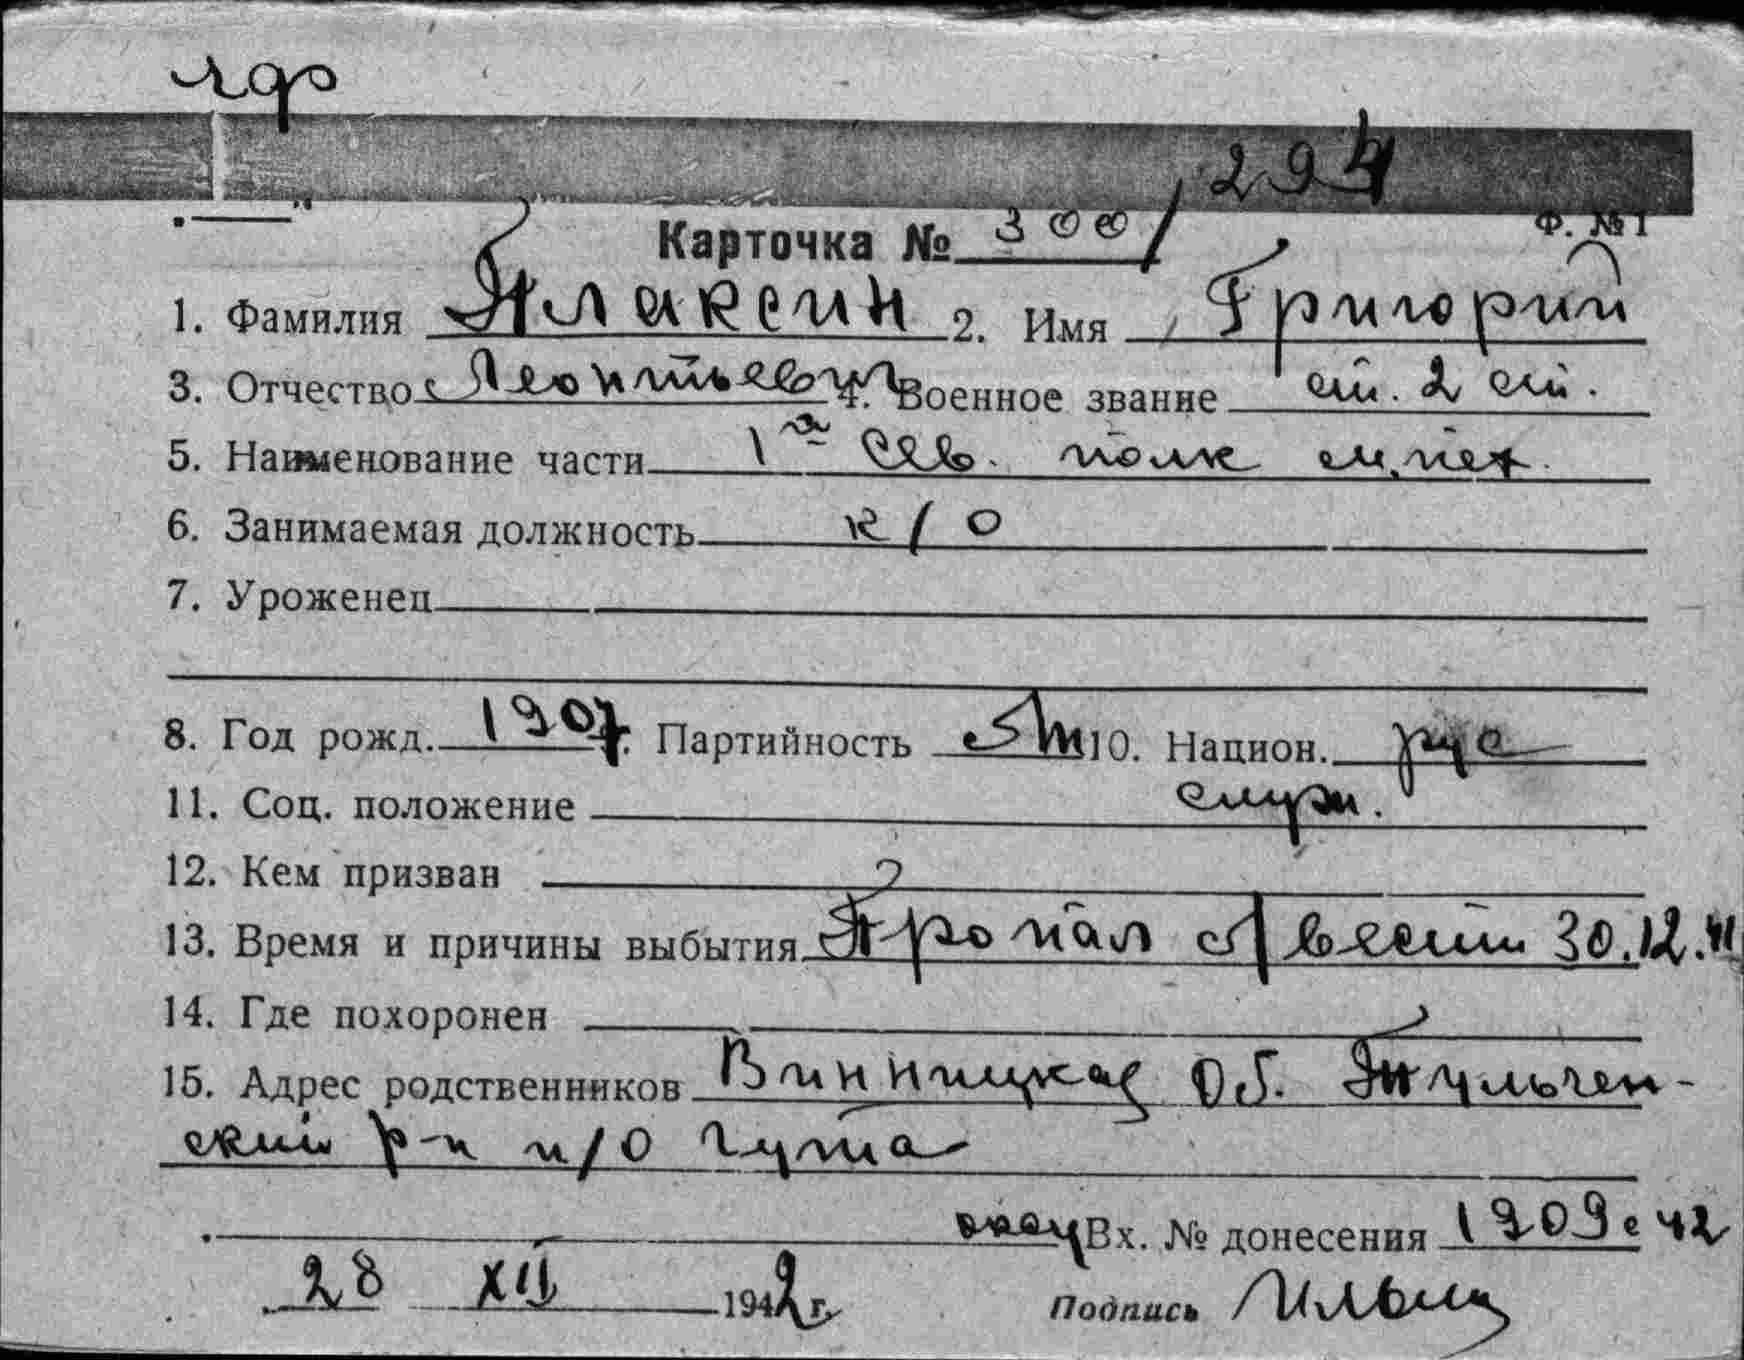 чф
294
Ф. №1
Карточка № 300/
1. Фамилия Плаксин 2. Имя Григорий
3. Отчество Леонтьевич 4. Военное звание ст. 2 ст.
5. Наименование части 1й Сев. полк м. пех.
6. Занимаемая должность к/о
7. Уроженец
8. Год рожд. 1907 9. Партийность б/п 10. Национ. рус
11. Соц. положение служ.
12. Кем призван
13. Время и причины выбытия Пропал б/вести 30.12.41
14. Где похоронен
15. Адрес родственников Винницкая об. Тульчен-
ский р-н п/о Гута
оккуп Вх. № донесения 1909с 42
28 XII 1942 г. Подпись